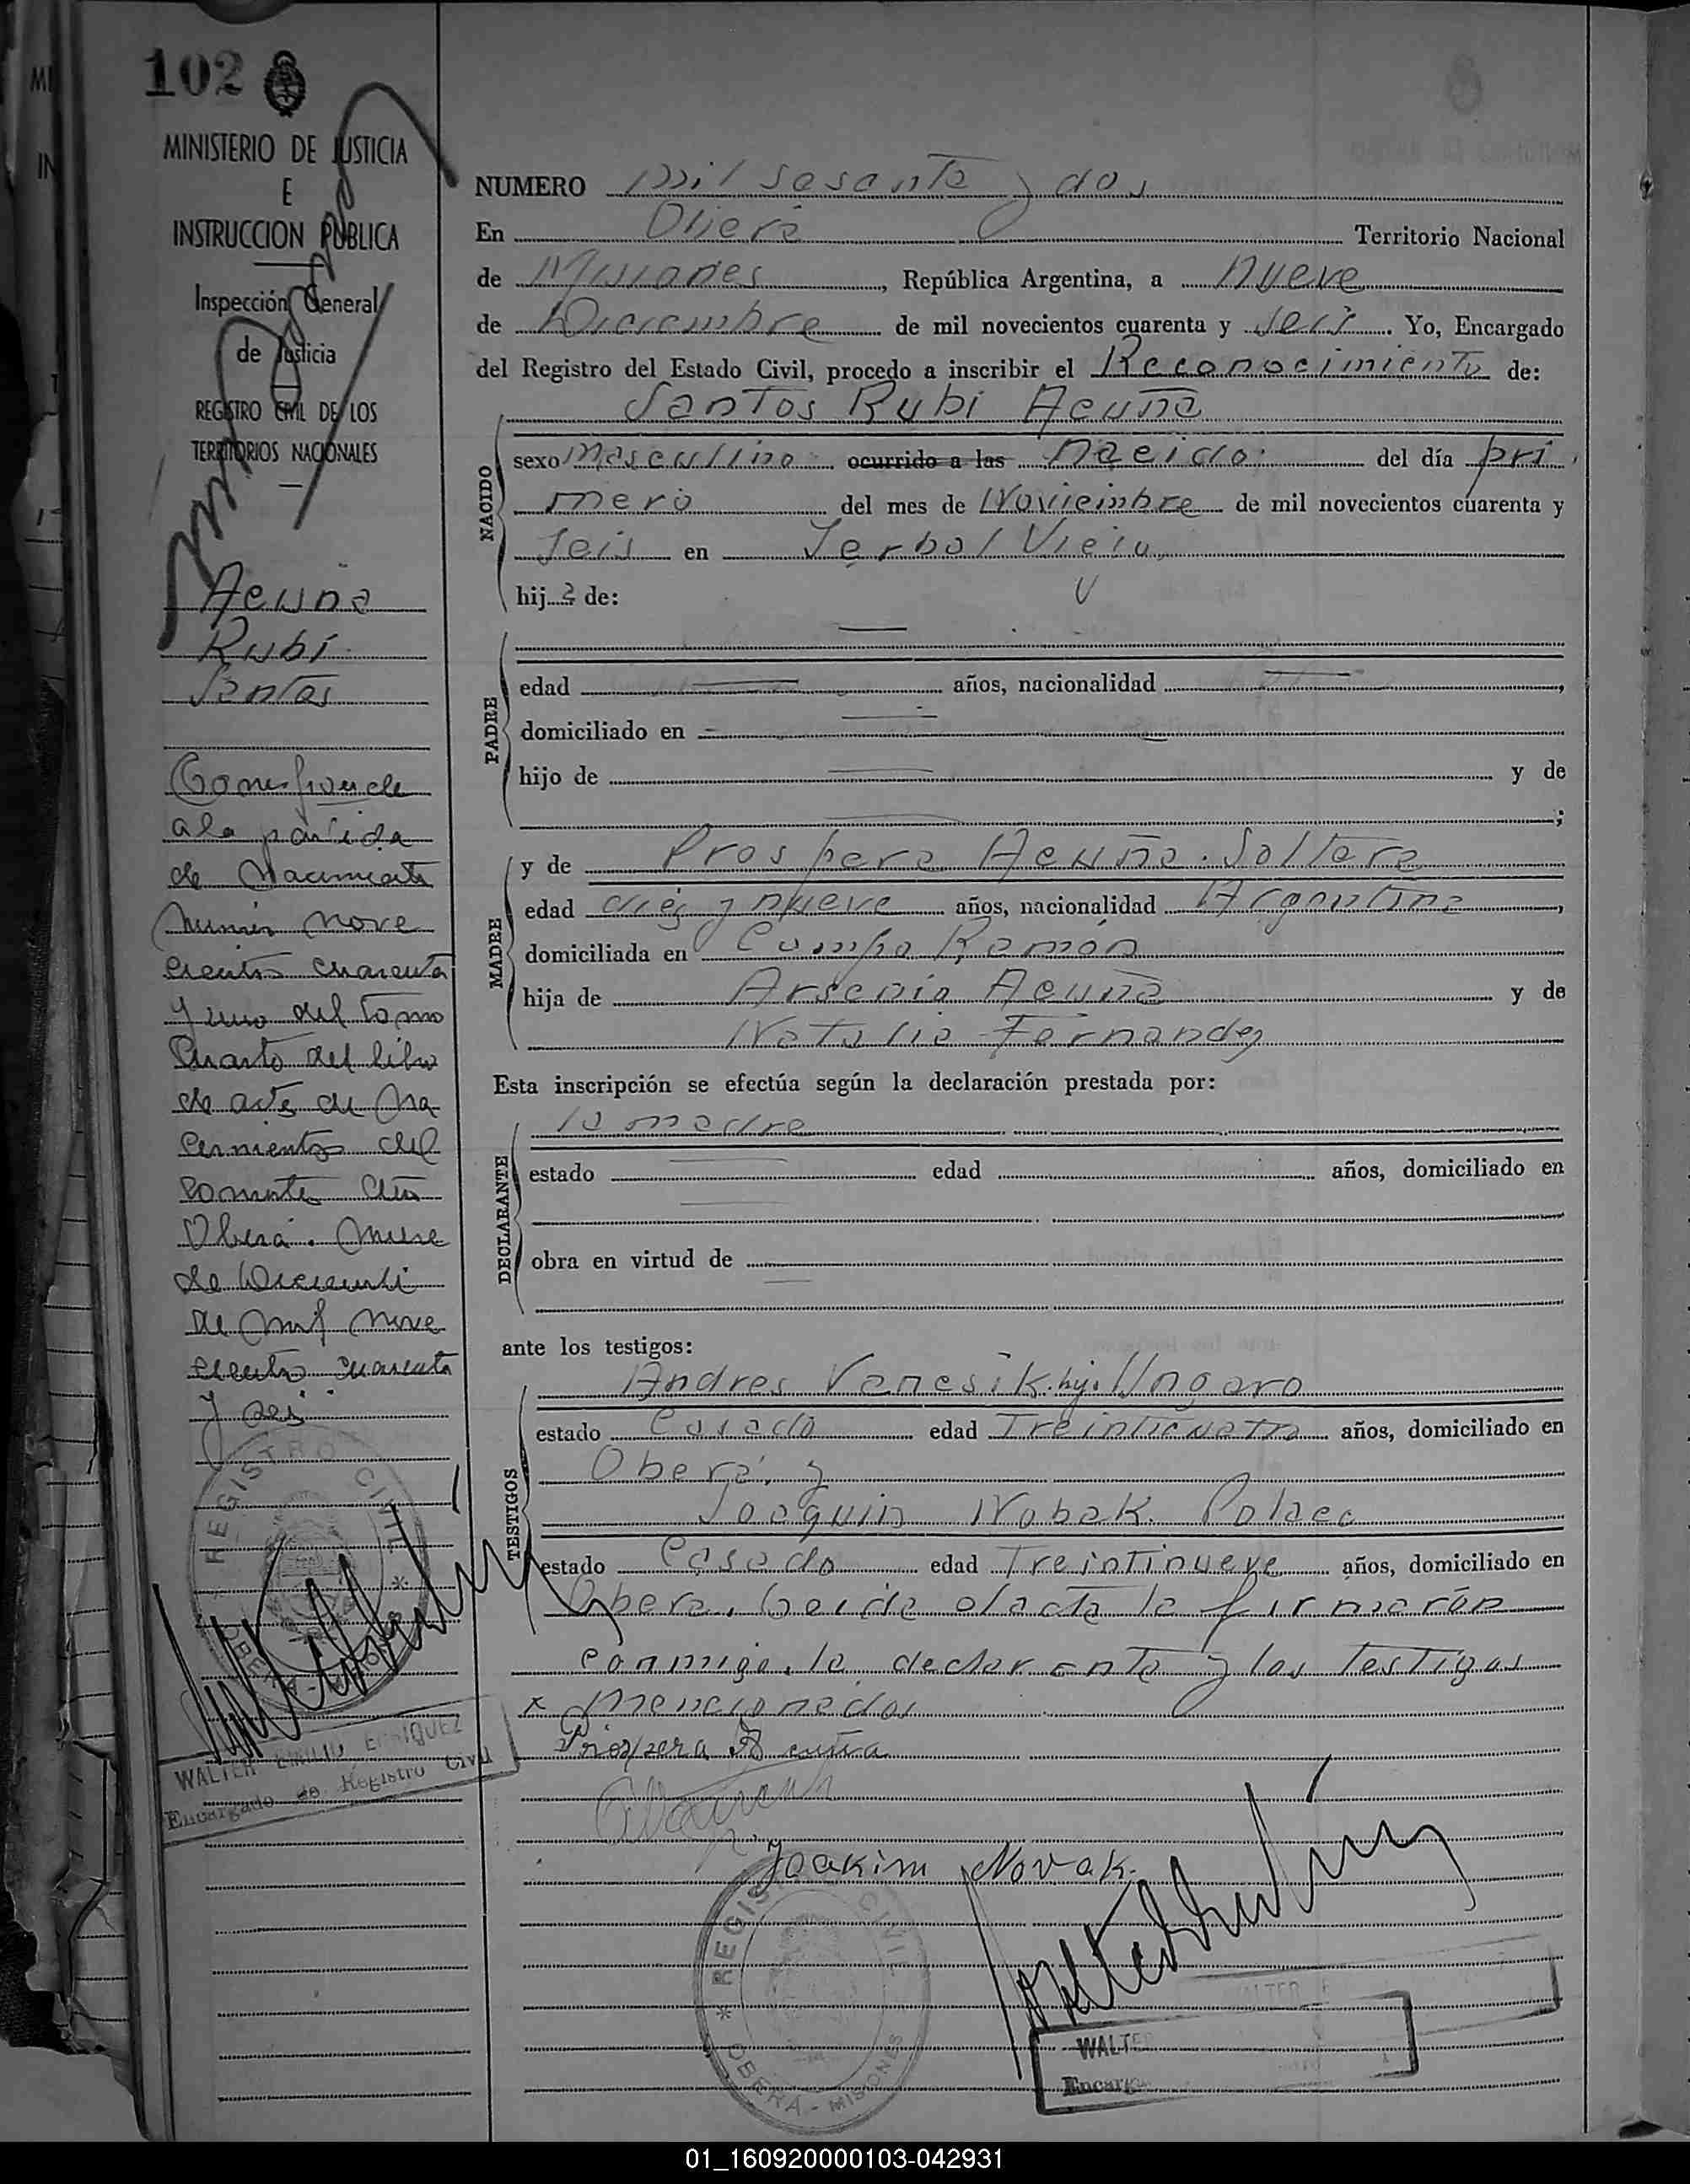 102
MINISTERIO DE JUSTICIA
E
INSTRUCCION PUBLICA
Inspección General
de Justicia
REGISTRO CIVIL DE LOS
TERRITORIOS NACIONALES
Acuña
Rubí
Santos
Corresponde
a la partida
de Nacimiento
número nove
cientos cuarenta
y uno del tomo
Cuarto del libro
de actas de Na
cimientos del
corriente año
Oberá. Nueve
de Diciembre
de mil nove
cientos cuarenta
y seis
REGISTRO CIVIL
OBERA
WALTER EMILIO ENRIQUEZ
Encargado de Registro Civil
NUMERO mil sesenta y dos
En Oberá Territorio Nacional
de Misiones, República Argentina, a nueve
de Diciembre de mil novecientos cuarenta y seis. Yo, Encargado
del Registro del Estado Civil, procedo a inscribir el Reconocimiento de:
Santos Rubi Acuña
NACIDO
sexo masculino ocurrido a las nacido del día pri
mero del mes de Noviembre de mil novecientos cuarenta y
seis en Yerbal Viejo
hij de:
PADRE
edad años, nacionalidad
domiciliado en
hijo de y de
MADRE
y de Prospera Acuña. Soltera
edad diez y nueve años, nacionalidad Argentina,
domiciliada en Campo Ramón
hija de Arsenio Acuña y de
Natalia Fernandez
Esta inscripción se efectúa según la declaración prestada por:
DECLARANTE
la madre
estado edad años, domiciliado en
obra en virtud de
ante los testigos:
TESTIGOS
Andres Vanesik. Ungaro
estado Casado edad Treinticuatro años, domiciliado en
Oberá, y
Joaquin Nobak. Polaco
estado Casado edad Treintinueve años, domiciliado en
Obera. Leida el acta la firmarón
conmigo, la declarante y los testigos
x mencionados
Prospera Acuña
Joakim Novak.
REGISTRO CIVIL
OBERA - MISIONES
WALTER E
WALTE
Encarg
01_160920000103-042931